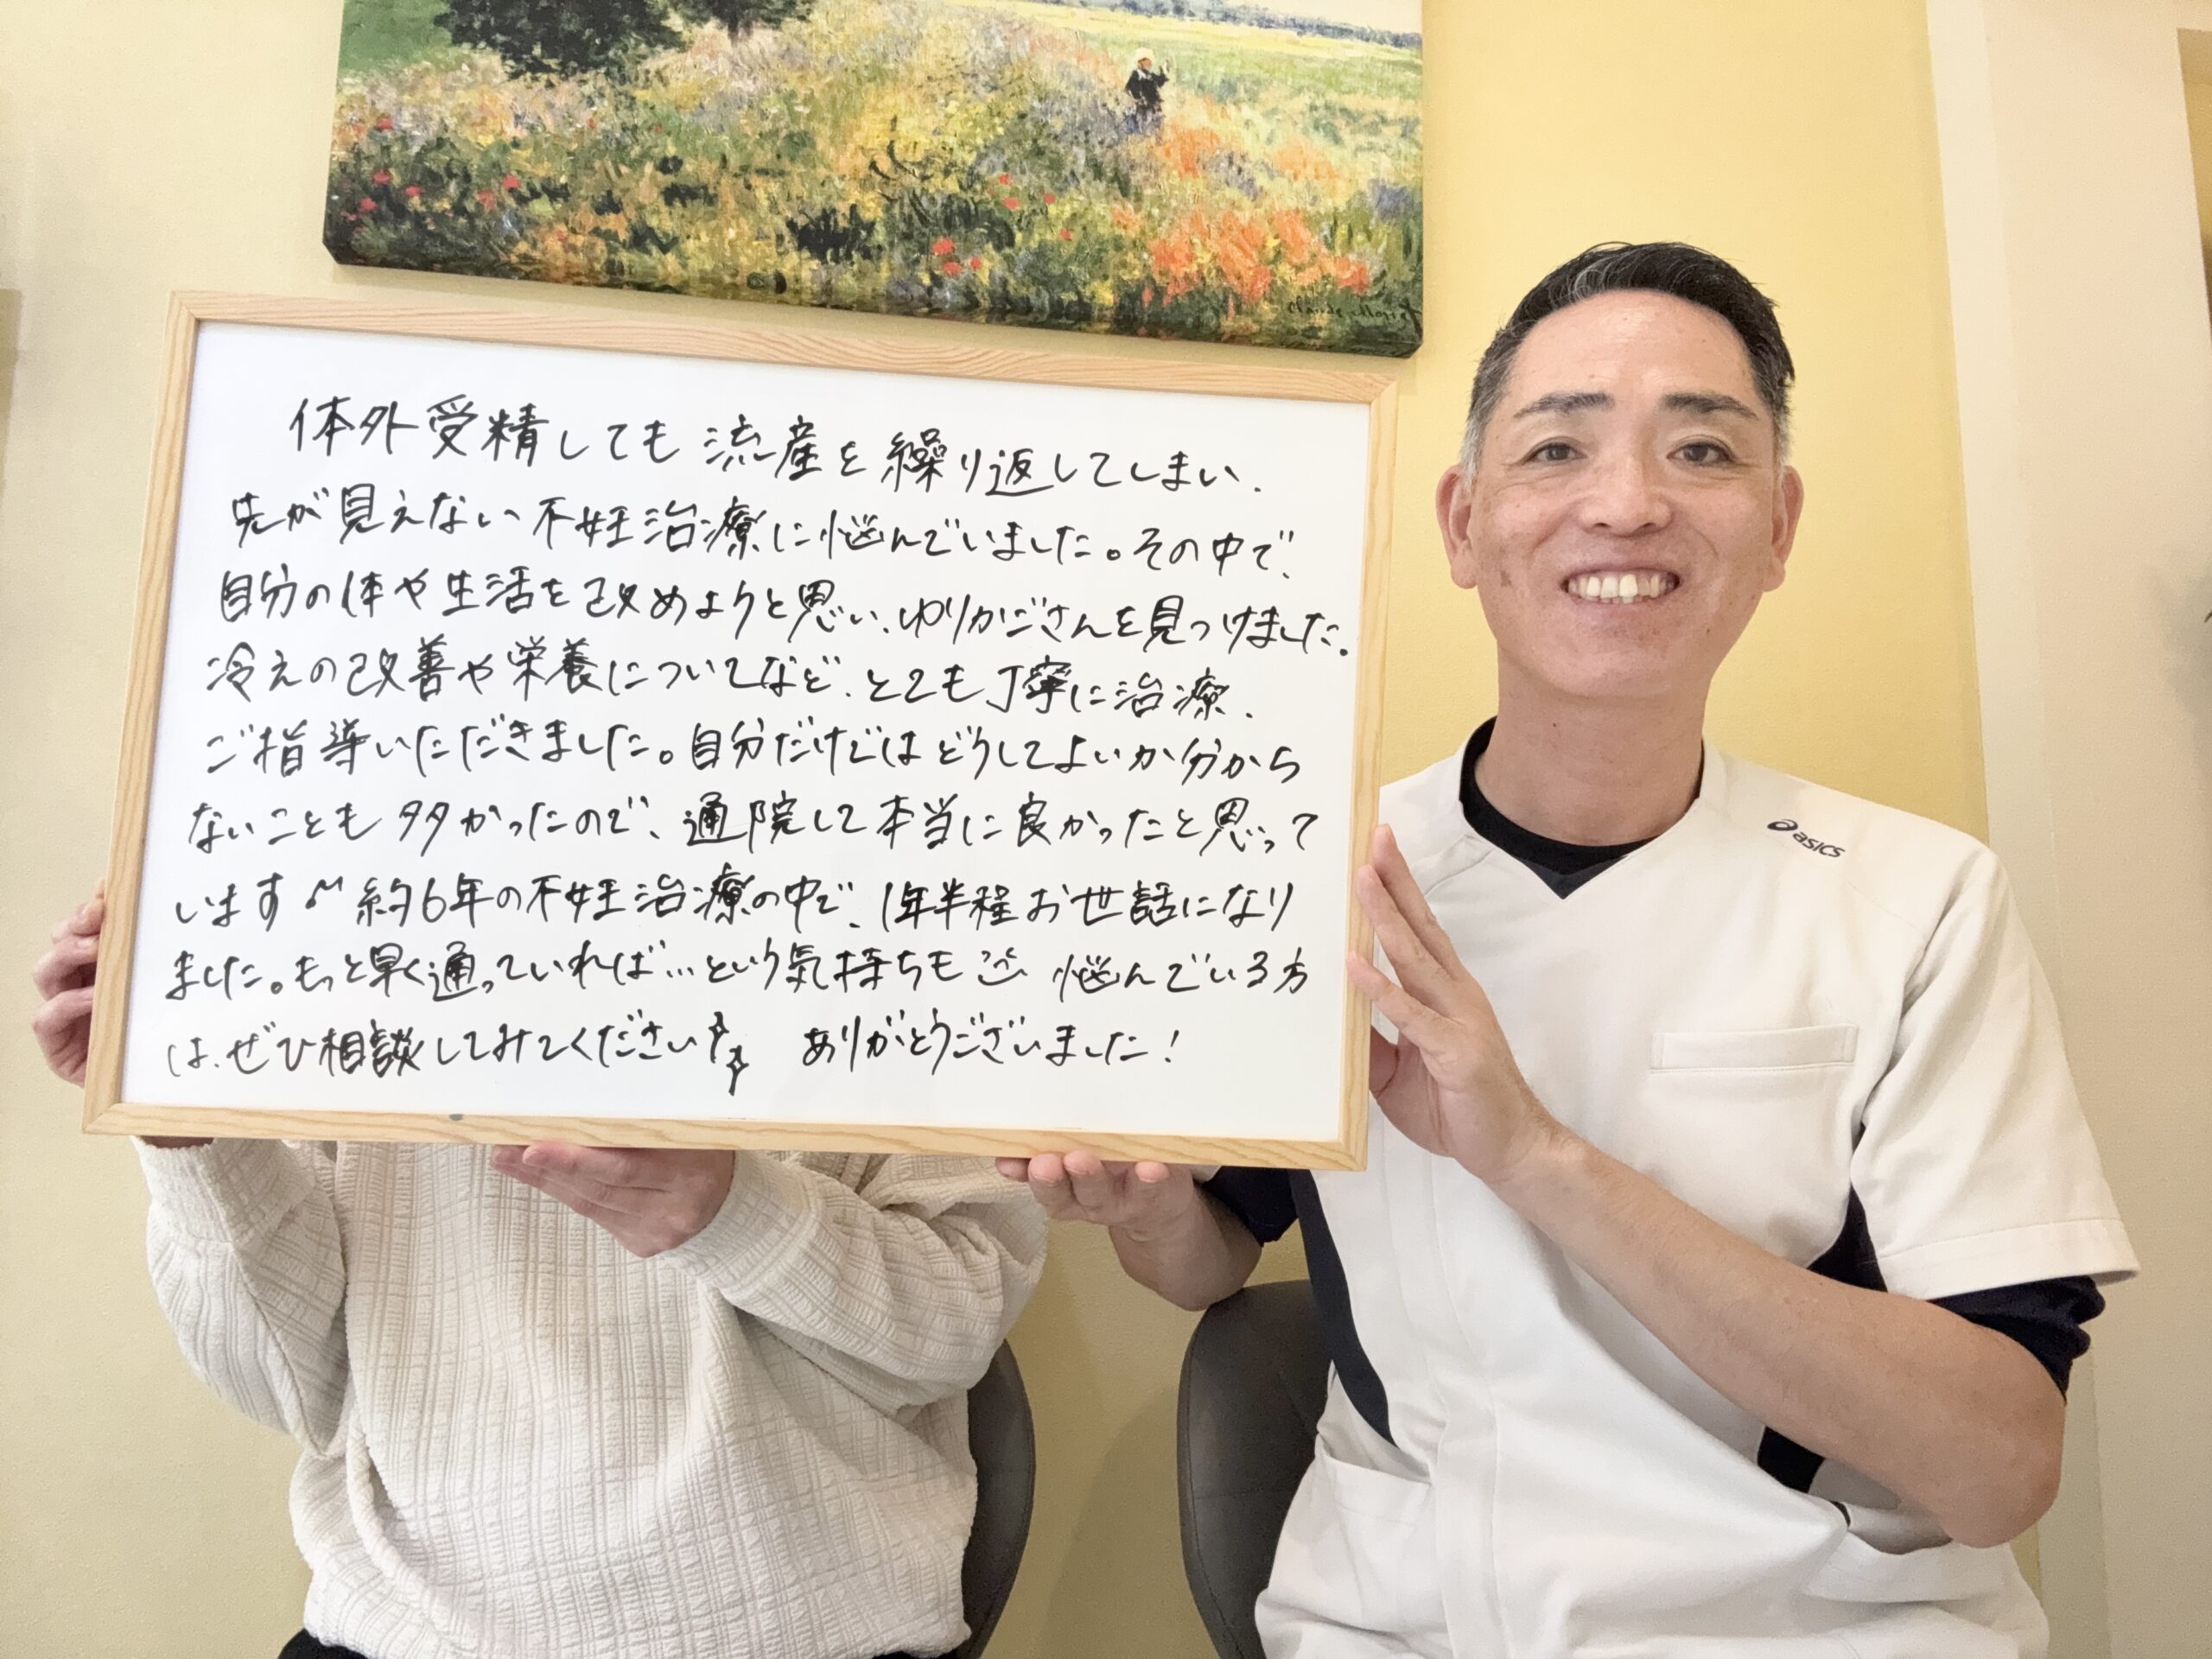 Claude Monet
体外受精しても流産を繰り返してしまい、
先が見えない不妊治療に悩んでいました。その中で、
自分の体や生活を改めようと思い、ゆりかごさんを見つけました。
冷えの改善や栄養についてなど、とても丁寧に治療、
ご指導いただきました。自分だけではどうしてよいか分から
ないことも多かったので、通院して本当に良かったと思って
います 約6年の不妊治療の中で、1年半程お世話になり
ました。もっと早く通っていれば…という気持ちも 悩んでいる方
は、ぜひ相談してみてください ありがとうございました!
asics